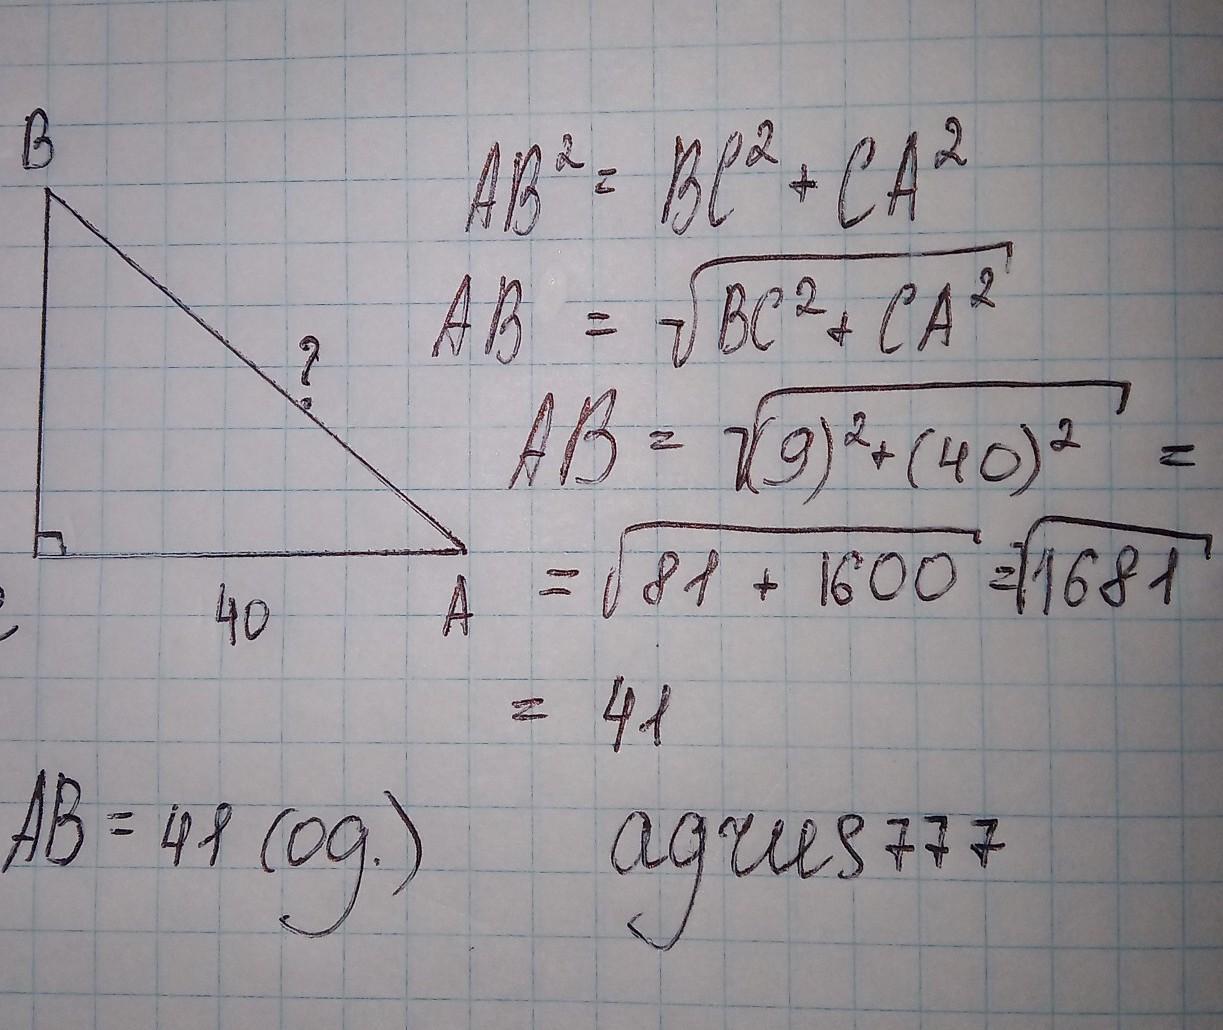 B
AB² = BC² + CA²
AB = √BC² + CA²
?
AB = √(9)² + (40)² =
= √81 + 1600 = √1681
40 A
= 41
AB = 41 (од.) agrus777